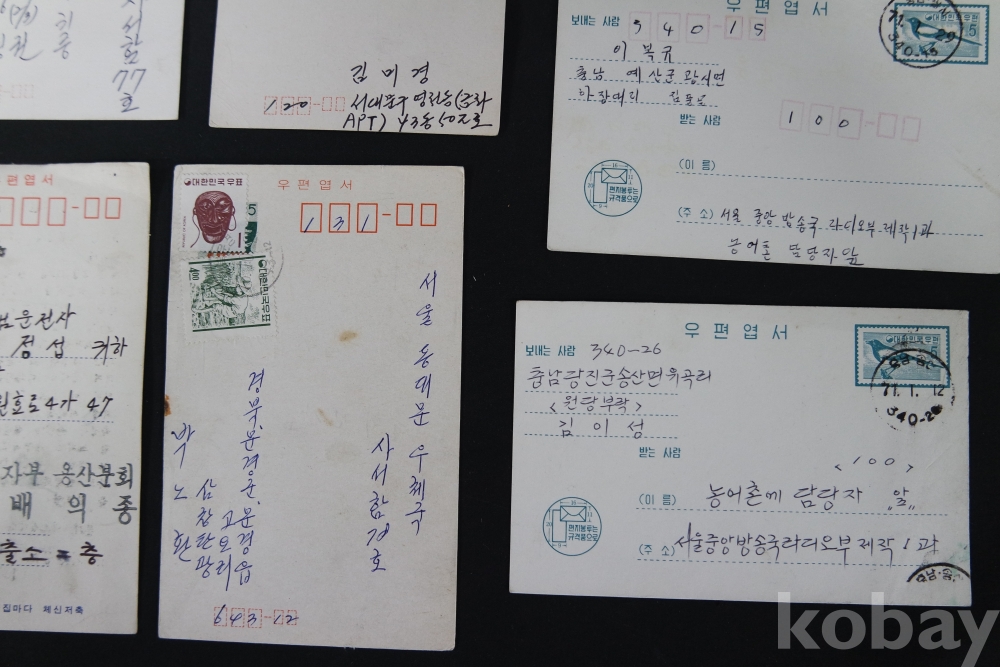 사서함
77호
김미경
120-
서대문구 영천동(금화
APT) 43동 507호
우편엽서
보내는 사람 340-15
이복규
충남 예산군 광시면
우편엽서
대한민국우표
5
71.
29
받는 사람
100-
(이 름)
편지봉투는
규격품으로
(주 소) 서울 중앙 방송국 라디오부 제작1과
농어촌 담당자 앞
편엽서
운전사
정섭 귀하
원효로4가 47
자부 용산분회
배의종
출소 = 층
집마다 체신저축
우편엽서
대한민국우표
5
1
대한민국우표
400
131-
서울 동대문 우체국
사서함 78호
경북.문경군.
박노환
643-12
우편엽서
보내는 사람 340-26
대한민국우표
71.1.12
340-26
충남당진군송산면 유곡리
<원당부락>
김이성
받는 사람
<100>
(이 름) 농어촌에 담당자 앞
편지봉투는
규격품으로
(주 소) 서울중앙방송국라디오부 제작1과
kobay